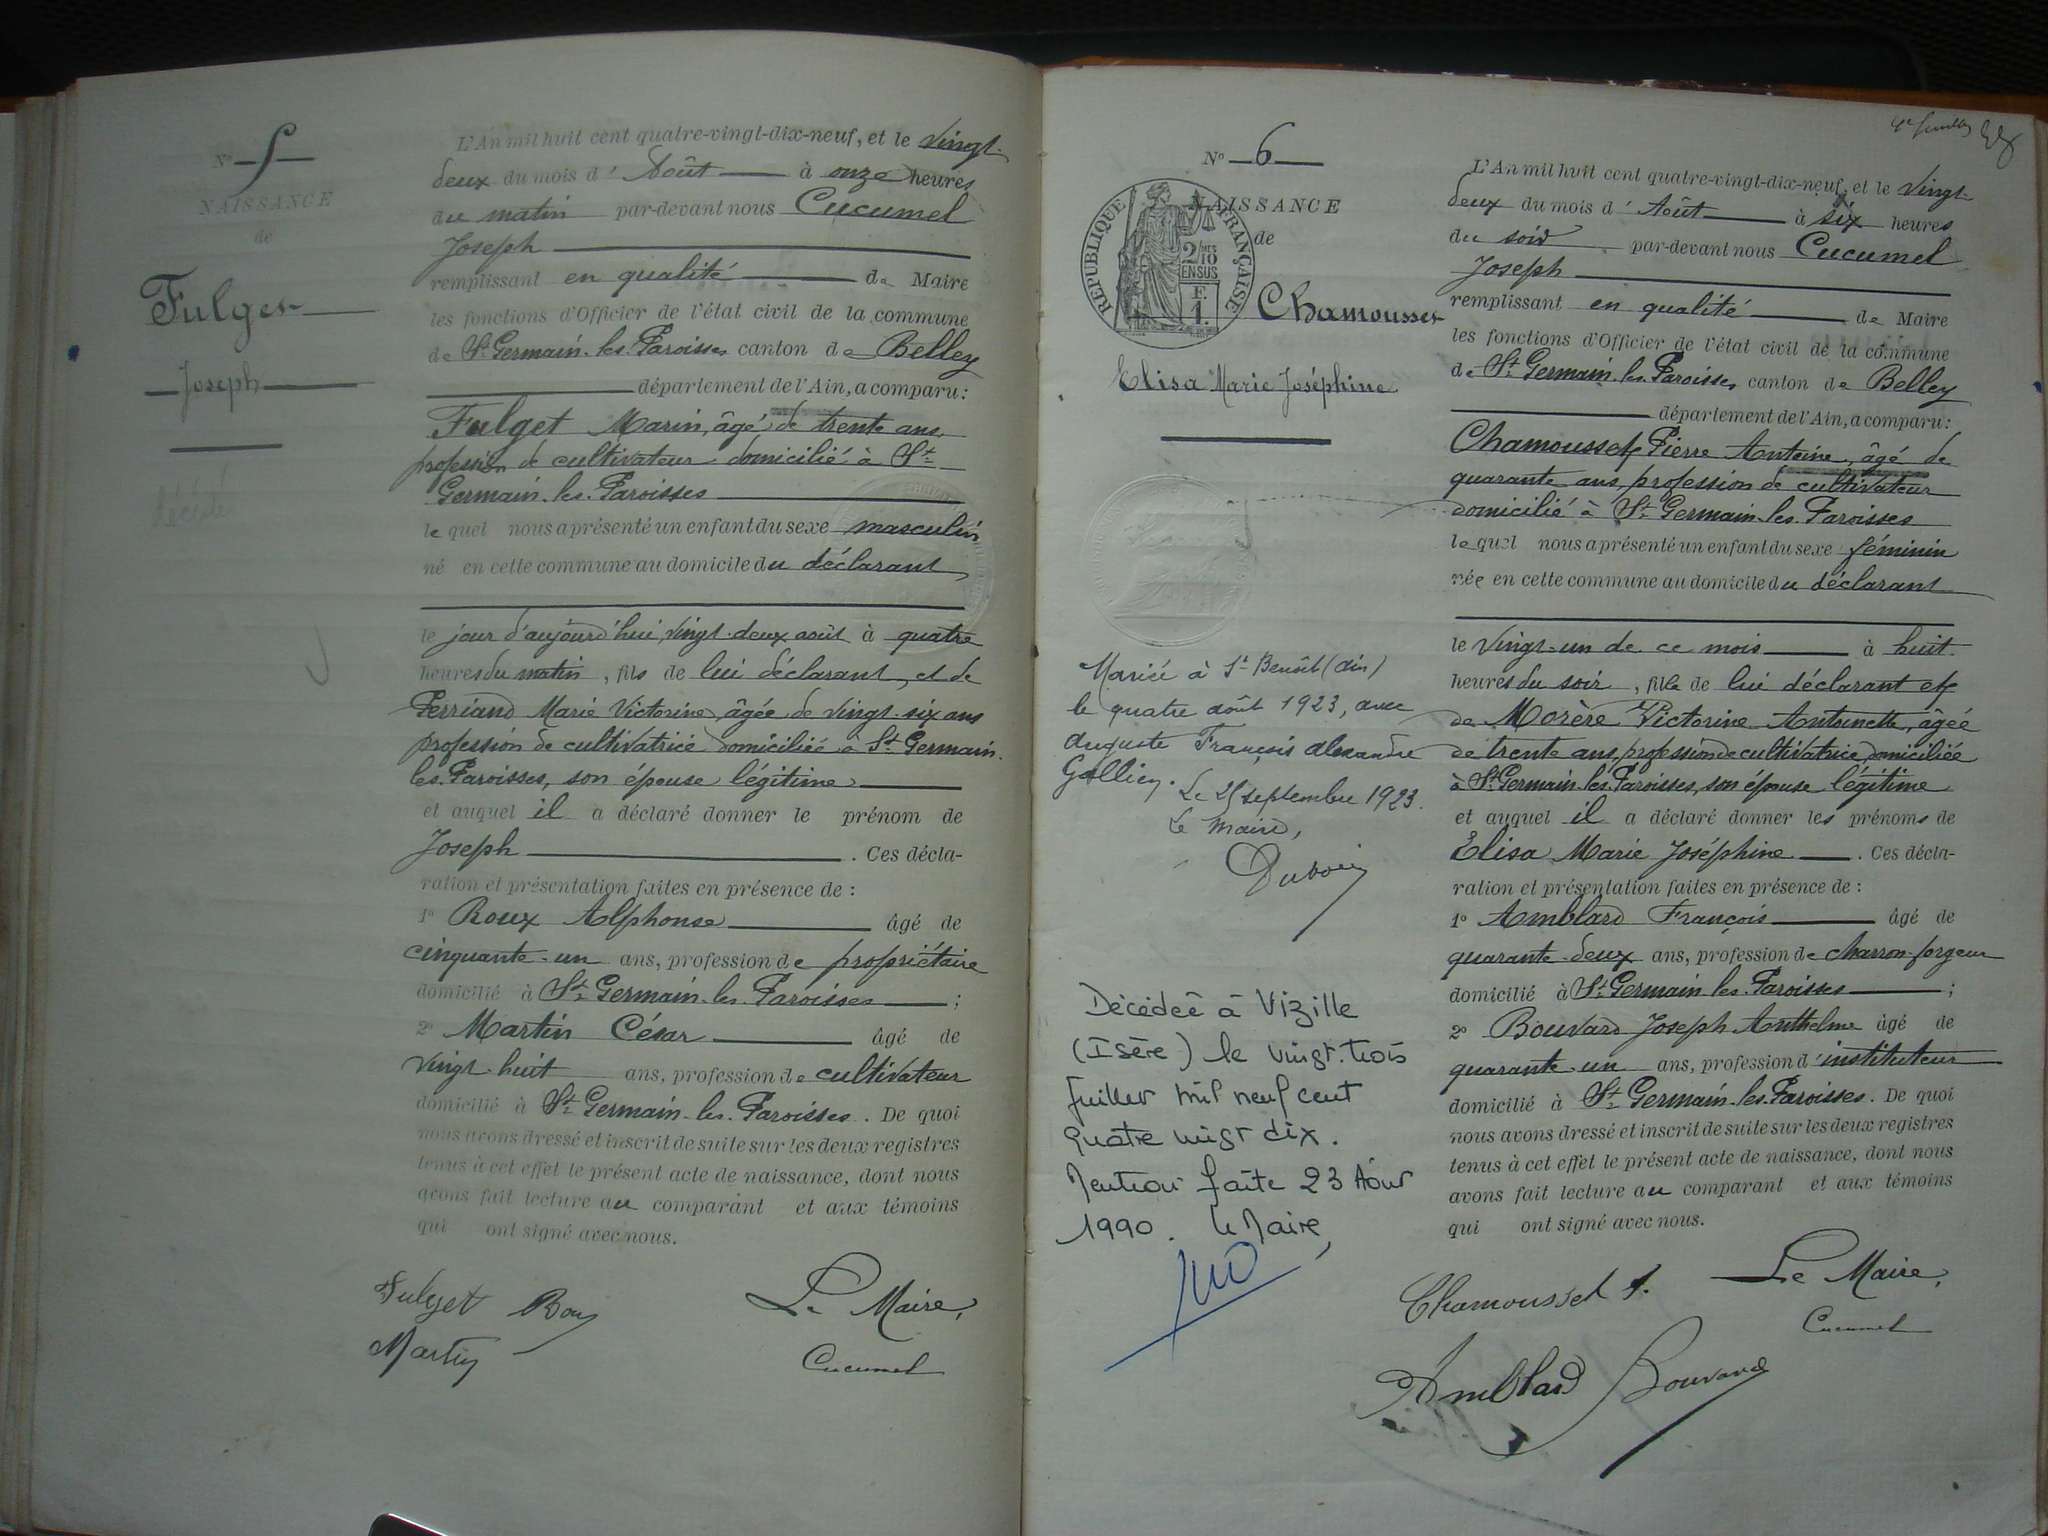 N° 5
NAISSANCE
de
Fulget
Joseph
décédé
L'An mil huit cent quatre-vingt-dix-neuf, et le vingt-
deux du mois d'Août à onze heures
du matin par-devant nous Cucumel
Joseph
remplissant en qualité de Maire
les fonctions d'Officier de l'état civil de la commune
de St Germain-les-Paroisses canton de Belley
département de l'Ain, a comparu:
Fulget Marin, âgé de trente ans,
profession de cultivateur domicilié à St
Germain-les-Paroisses
lequel nous a présenté un enfant du sexe masculin
né en cette commune au domicile du déclarant
le jour d'aujourd'hui, vingt-deux août à quatre
heures du matin, fils de lui déclarant, et de
Perriand Marie Victorine, âgée de vingt-six ans
profession de cultivatrice domiciliée à St Germain-
les-Paroisses, son épouse légitime
et auquel il a déclaré donner le prénom de
Joseph. Ces décla-
ration et présentation faites en présence de :
1° Roux Alphonse âgé de
cinquante-un ans, profession de propriétaire
domicilié à St Germain-les-Paroisses ;
2° Martin César âgé de
vingt-huit ans, profession de cultivateur
domicilié à St Germain-les-Paroisses. De quoi
nous avons dressé et inscrit de suite sur les deux registres
tenus à cet effet le présent acte de naissance, dont nous
avons fait lecture au comparant et aux témoins
qui ont signé avec nous.
Fulget Roux Le Maire,
Martin Cucumel
N° 6
NAISSANCE
de
RÉPUBLIQUE FRANÇAISE
2/10 MES
EN SUS
F.
1.
Chamousset
Elisa Marie Joséphine
Mariée à St Benoît (Ain)
le quatre août 1923, avec
Auguste François Alexandre
Gallien. Le 25 septembre 1923.
Le Maire,
Dubois
Décédée à Vizille
(Isère) le vingt-trois
Juillet mil neuf cent
quatre vingt dix.
Mention faite 23 Août
1990. Le Maire,
L'An mil huit cent quatre-vingt-dix-neuf, et le vingt-
deux du mois d'Août à six heures
du soir par-devant nous Cucumel
Joseph
remplissant en qualité de Maire
les fonctions d'Officier de l'état civil de la commune
de St Germain-les-Paroisses canton de Belley
département de l'Ain, a comparu:
Chamousset Pierre Antoine, âgé de
quarante ans, profession de cultivateur
domicilié à St Germain-les-Paroisses
lequel nous a présenté un enfant du sexe féminin
née en cette commune au domicile du déclarant
le vingt-un de ce mois à huit
heures du soir, fille de lui déclarant et
de Morère Victorine Antoinette, âgée
de trente ans, profession de cultivatrice, domiciliée
à St Germain-les-Paroisses, son épouse légitime
et auquel il a déclaré donner les prénoms de
Elisa Marie Joséphine. Ces décla-
ration et présentation faites en présence de :
1° Amblard François âgé de
quarante-deux ans, profession de charron-forgeur
domicilié à St Germain-les-Paroisses ;
2° Bouvard Joseph Anthelme âgé de
quarante-un ans, profession d'instituteur
domicilié à St Germain-les-Paroisses. De quoi
nous avons dressé et inscrit de suite sur les deux registres
tenus à cet effet le présent acte de naissance, dont nous
avons fait lecture au comparant et aux témoins
qui ont signé avec nous.
Chamousset A. Le Maire,
Cucumel
Amblard Bouvard